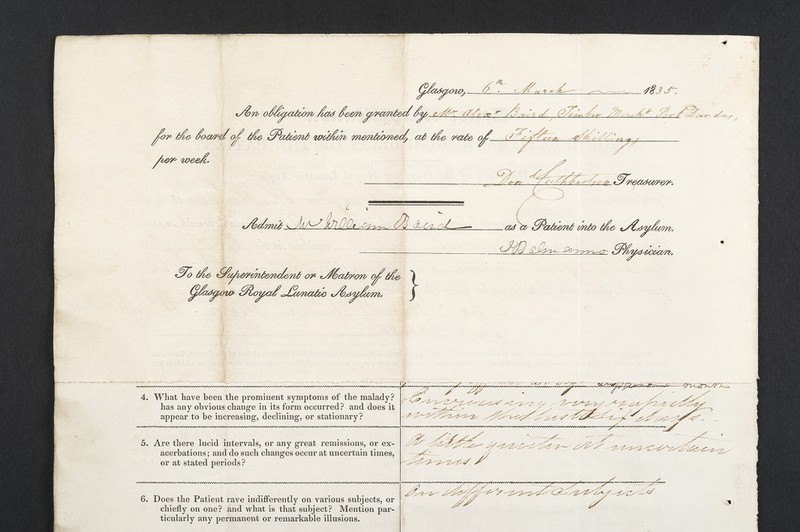 Glasgow, 6th. March 1835.
An obligation has been granted by Mr. Alexr Baird, Timber Mercht Port Dundas,
for the board of the Patient within mentioned, at the rate of Fifteen Shillings
per week.
Don d Cuthbertson Treasurer.
Admit Mr William Baird as a Patient into the Asylum.
J Balmanno Physician.
To the Superintendent or Matron of the
Glasgow Royal Lunatic Asylum.
month
4. What have been the prominent symptoms of the malady?
has any obvious change in its form occurred? and does it
appear to be increasing, declining, or stationary?
Increasing very rapidly
within the last six days.
5. Are there lucid intervals, or any great remissions, or ex-
acerbations; and do such changes occur at uncertain times,
or at stated periods?
A little quieter at uncertain
times
6. Does the Patient rave indifferently on various subjects, or
chiefly on one? and what is that subject? Mention par-
ticularly any permanent or remarkable illusions.
On different Subjects